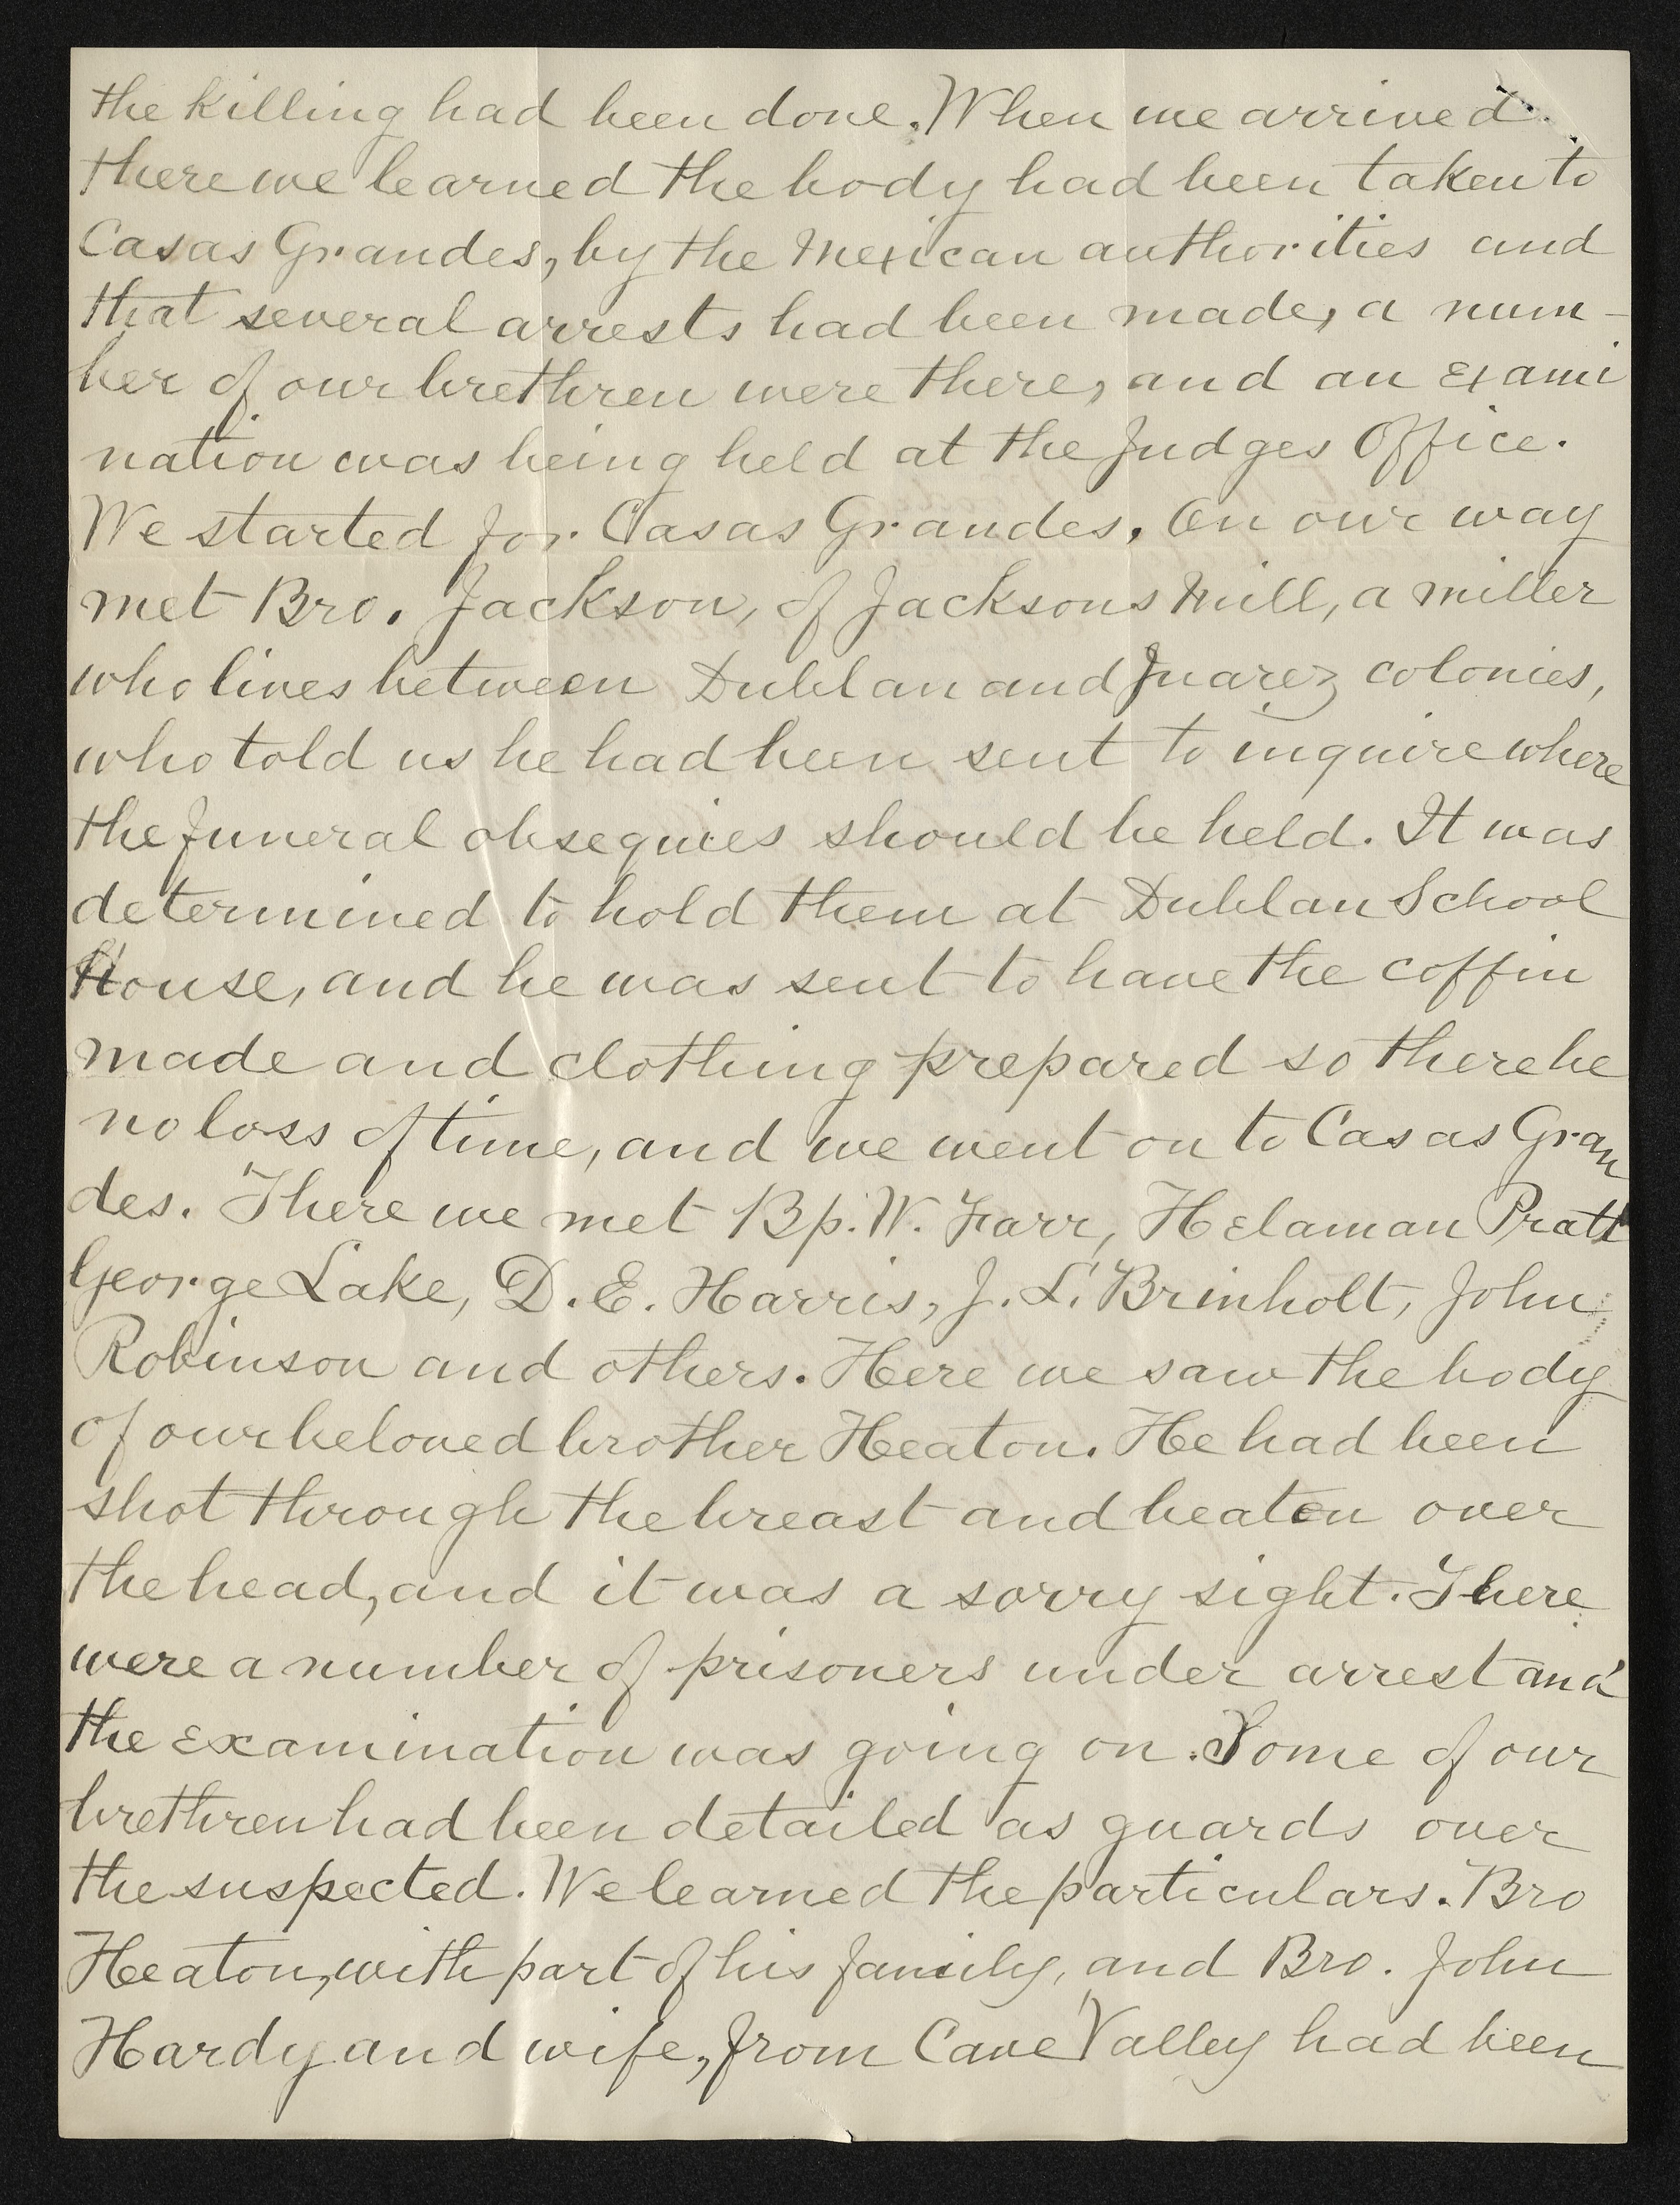 the killing had been done. When we arrived
there we learned the body had been taken to
Casas Grandes, by the Mexican authorities and
that several arrests had been made, a num-
ber of our brethren were there, and an exami
nation was being held at the Judges Office.
We started for Casas Grandes. On our way
met Bro. Jackson, of Jacksons Mill, a miller
who lives between Dublan and Juarez colonies,
who told us he had been sent to inquire where
the funeral obsequies should be held. It was
determined to hold them at Dublan School
House, and he was sent to have the coffin
made and clothing prepared so there be
no loss of time, and we went on to Casas Gran
des. There we met Bp. W. Farr, Helaman Pratt
George Lake, D. E. Harris, J. L. Brinholt, John
Robinson and others. Here we saw the body
of our beloved brother Heaton. He had been
shot through the breast and beaten over
the head, and it was a sorry sight. There
were a number of prisoners under arrest and
the examination was going on. Some of our
brethren had been detailed as guards over
the suspected. We learned the particulars. Bro
Heaton, with part of his family, and Bro. John
Hardy and wife, from Cave Valley had been